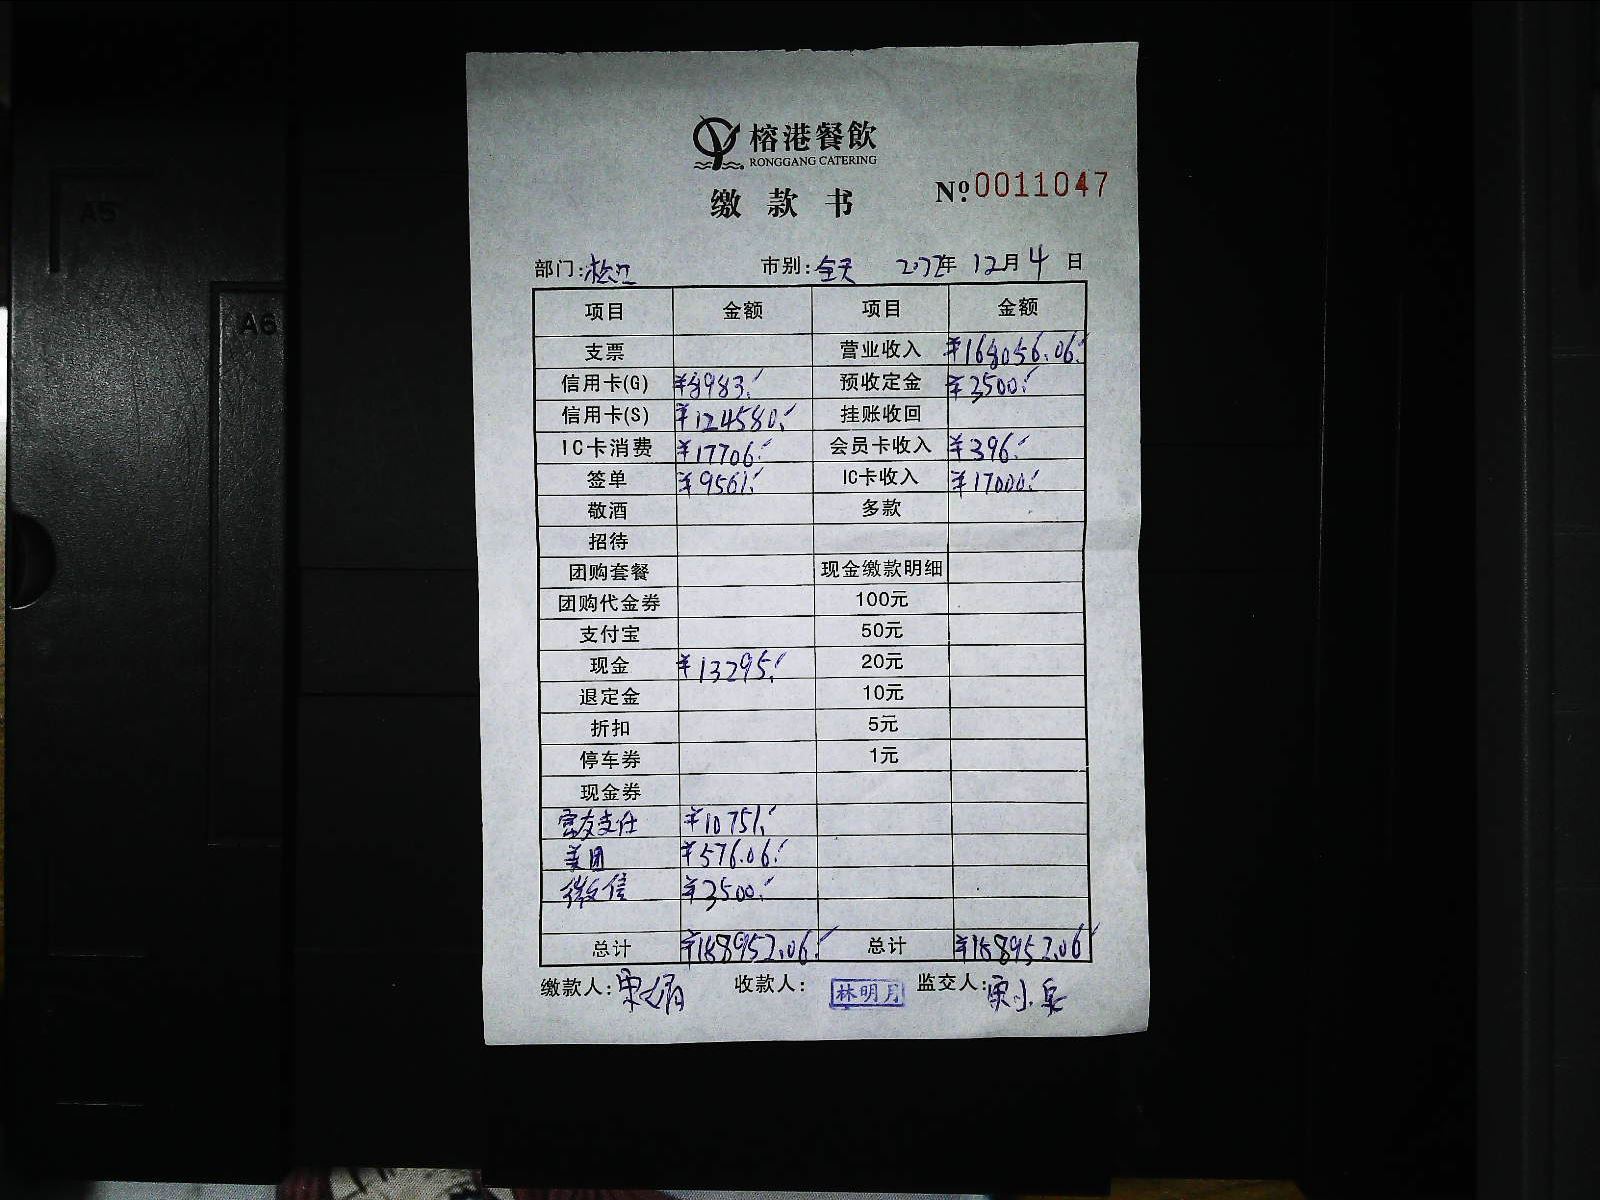 榕港餐飲
RONGGANG CATERING
缴款书
№0011047
部门: 市别:全天 年12月4日
项目 金额 项目 金额
支票 营业收入 ¥168056.06
信用卡(G) ¥8983. 预收定金 ¥3500.
信用卡(S) ¥124580. 挂账收回
IC卡消费 ¥17706. 会员卡收入 ¥396.
签单 ¥9561. IC卡收入 ¥17000.
敬酒 多款
招待
团购套餐 现金缴款明细
团购代金券 100元
支付宝 50元
现金 ¥13295. 20元
退定金 10元
折扣 5元
停车券 1元
现金券
¥10751.
美团 ¥576.06
微信 ¥3500.
总计 ¥188952.06 总计 ¥188952.06
缴款人: 收款人: 林明月 监交人: